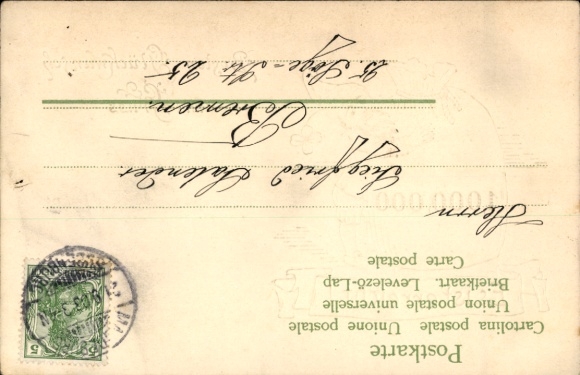 Postkarte
Cartolina postale Unione postale
Union postale universelle
Briefkaart. Levelező-Lap
Carte postale
Herrn
Siegfried Salender
Bremen.
Str. 25.
5 5
1000000